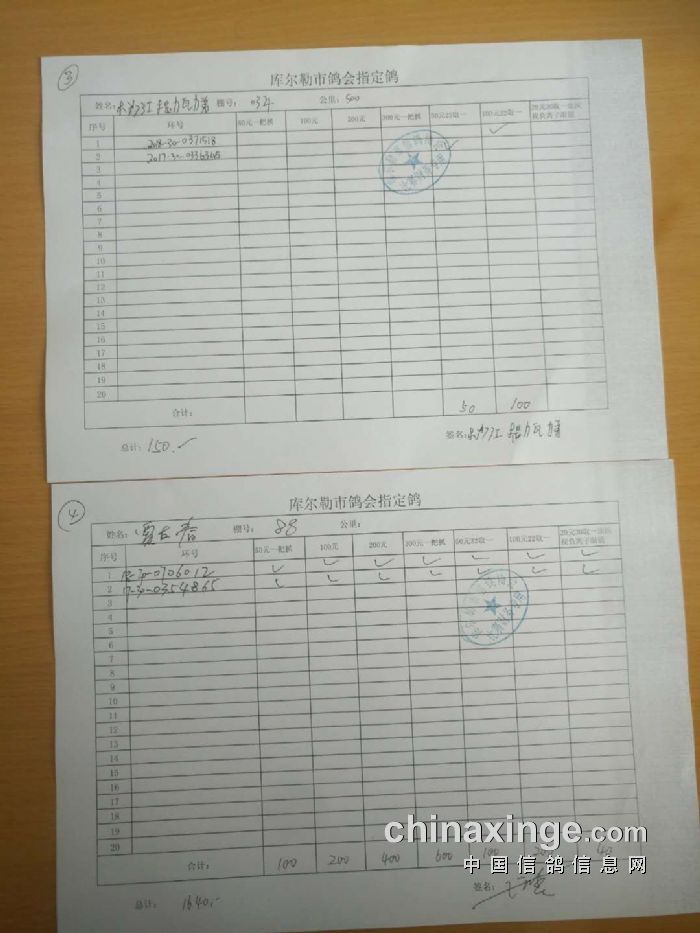 3
库尔勒市鸽会指定鸽
姓名: 木沙江 棚号: 034 公里: 500
序号 环号 50元一把抓 100元 200元 300元一把抓 50元22取一 100元22取一
1 2018-30-0371518 ✓
2 2017-30- ✓
3
4
5
6
7
8
9
10
11
12
13
14
15
16
17
18
19
20
合计: 50 100
总计: 150.- 签名: 木沙江
4
库尔勒市鸽会指定鸽
姓名: 棚号: 88 公里:
序号 环号 50元一把抓 100元 200元 300元一把抓 50元22取一 100元22取一
1 -30-0706012 ✓ ✓ ✓ ✓ ✓ ✓ ✓
2 17-30-0354865 ✓ ✓ ✓ ✓ ✓ ✓ ✓
3
4
5
6
7
8
9
10
11
12
13
14
15
16
17
18
19
20
合计: 100 200 400 600 100 40
总计: 1640.- 签名:
chinaxinge.com
中国信鸽信息网